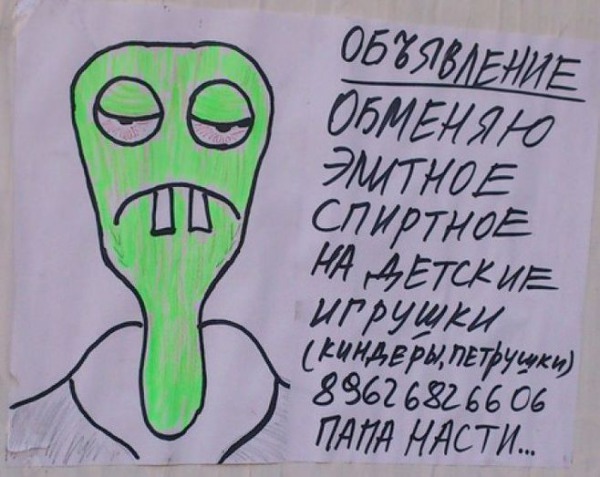 ОБЪЯВЛЕНИЕ
ОБМЕНЯЮ
ЭЛИТНОЕ
СПИРТНОЕ
НА ДЕТСКИЕ
ИГРУШКИ
(КИНДЕРЫ, ПЕТРУШКИ)
89626826606
ПАПА НАСТИ...